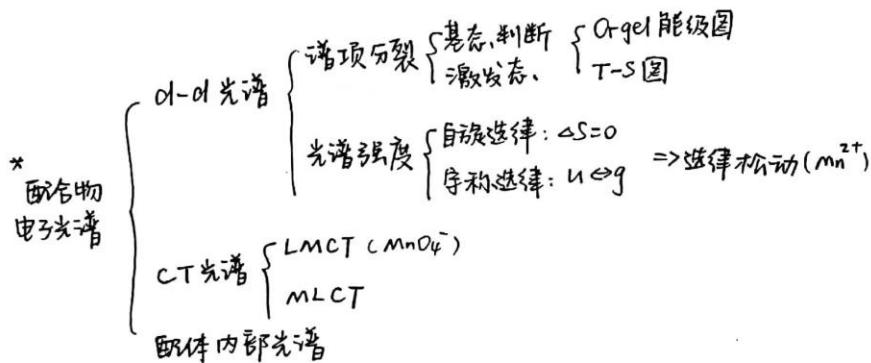 *
配合物
电子光谱
d-d光谱
谱项分裂
基态、判断
激发态、
Orgel能级图
T-S图
光谱强度
自旋选律：△S=0
宇称选律：u⇔g
⇒选律松动(Mn²⁺)
CT光谱
LMCT (MnO₄⁻)
MLCT
配体内部光谱